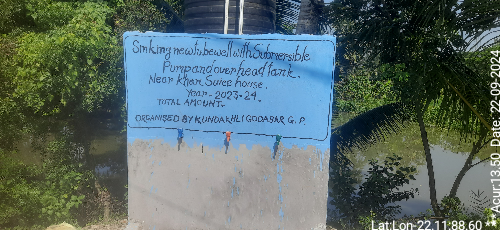 Sinking new tubewell with Submersible
Pump and over head tank.
Near Khan Saies house.
Year - 2023-24.
TOTAL AMOUNT-
ORGANISED BY KUNDAKHLI GODABAR G. P.
Lat:Lon-22.11:88.60 **
Acur:13.50, Date:
09:2024